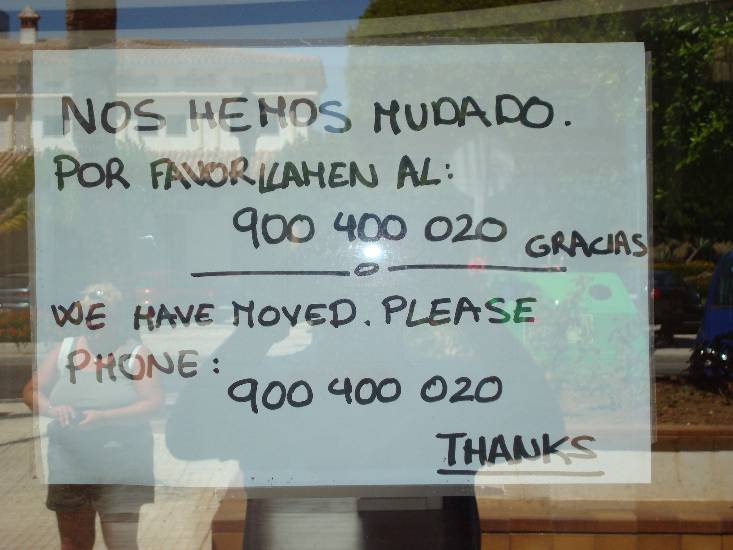 NOS HEMOS MUDADO.
POR FAVOR LLAMEN AL:
900 400 020 GRACIAS
WE HAVE MOVED. PLEASE
PHONE:
900 400 020
THANKS